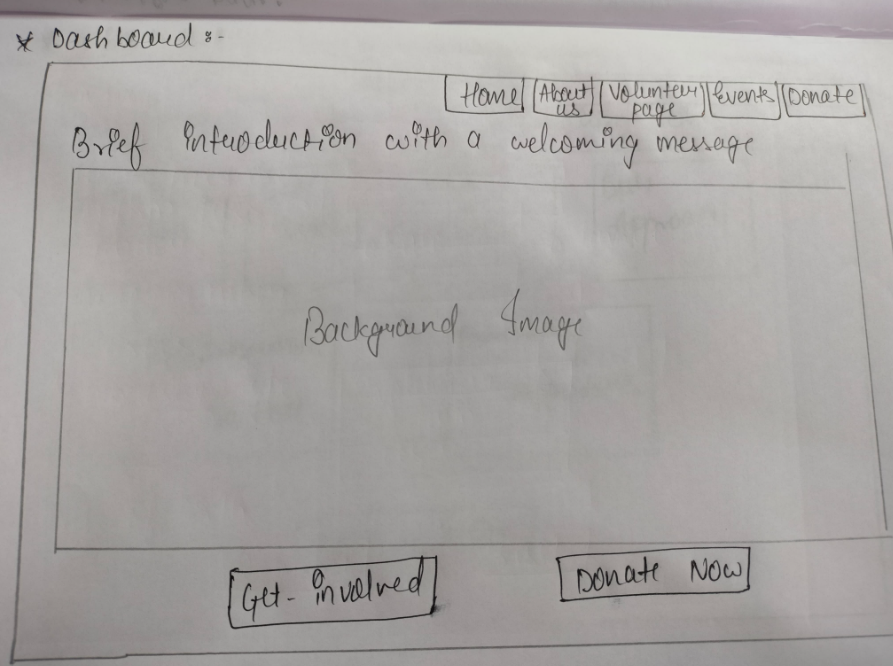 * Dashboard :-
Home About us Volunteer page Events Donate
Brief introduction with a welcoming message
Background Image
Get-involved Donate Now